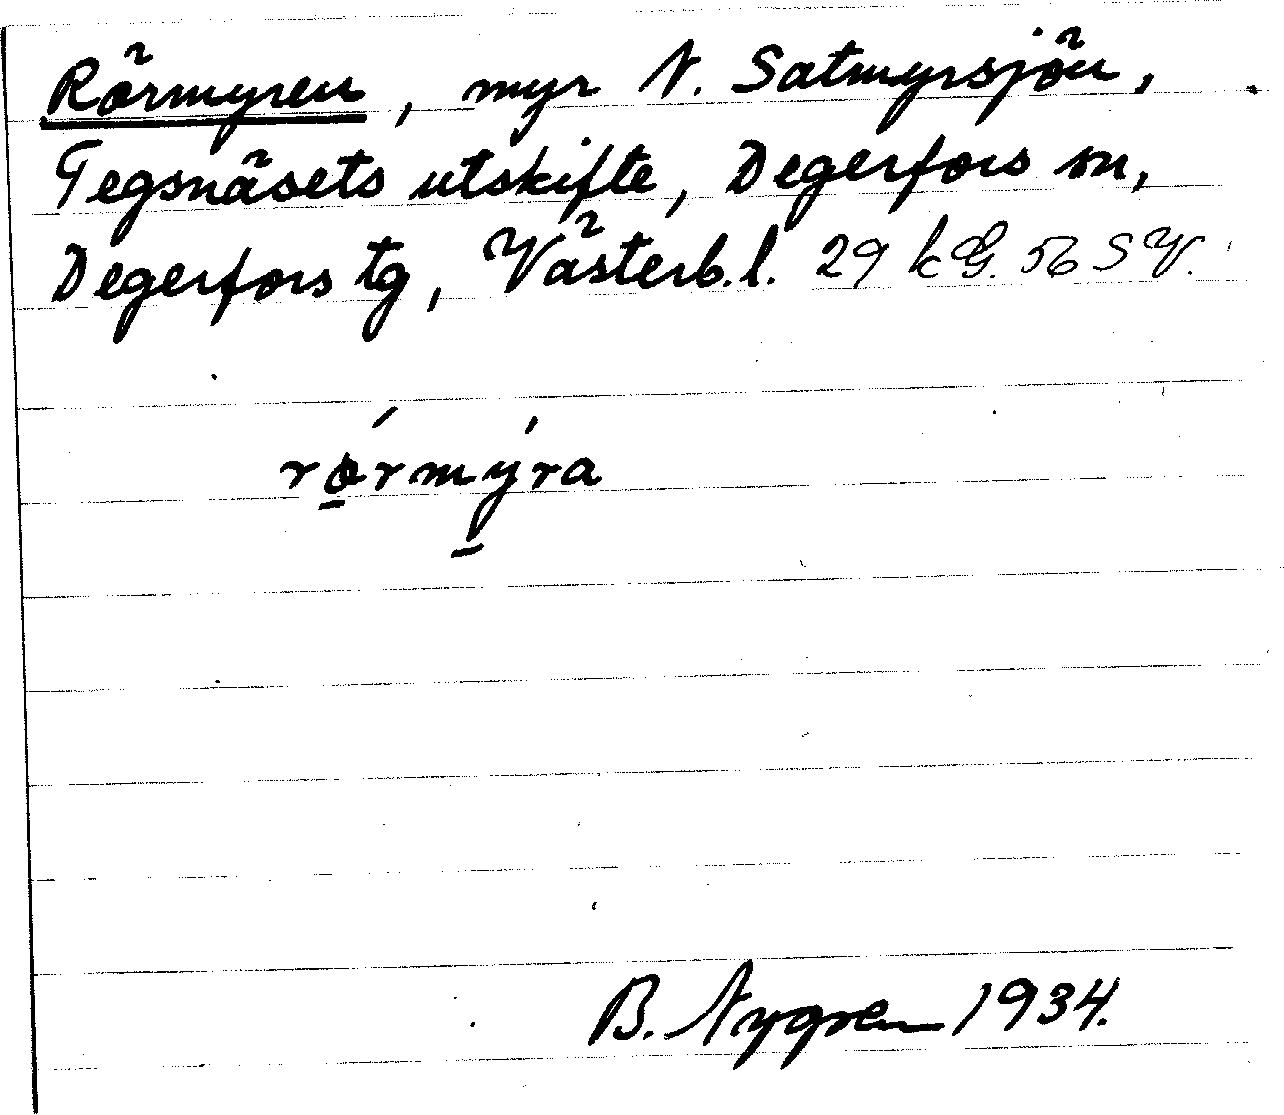 Rörmyren, myr N. Satmyrsjön,
Tegsnäsets utskifte, Degerfors sn,
Degerfors tg, Västerb. l. 29 kG. 56 SV.
rǿ̱rmý̱ra
B. Nygren 1934.